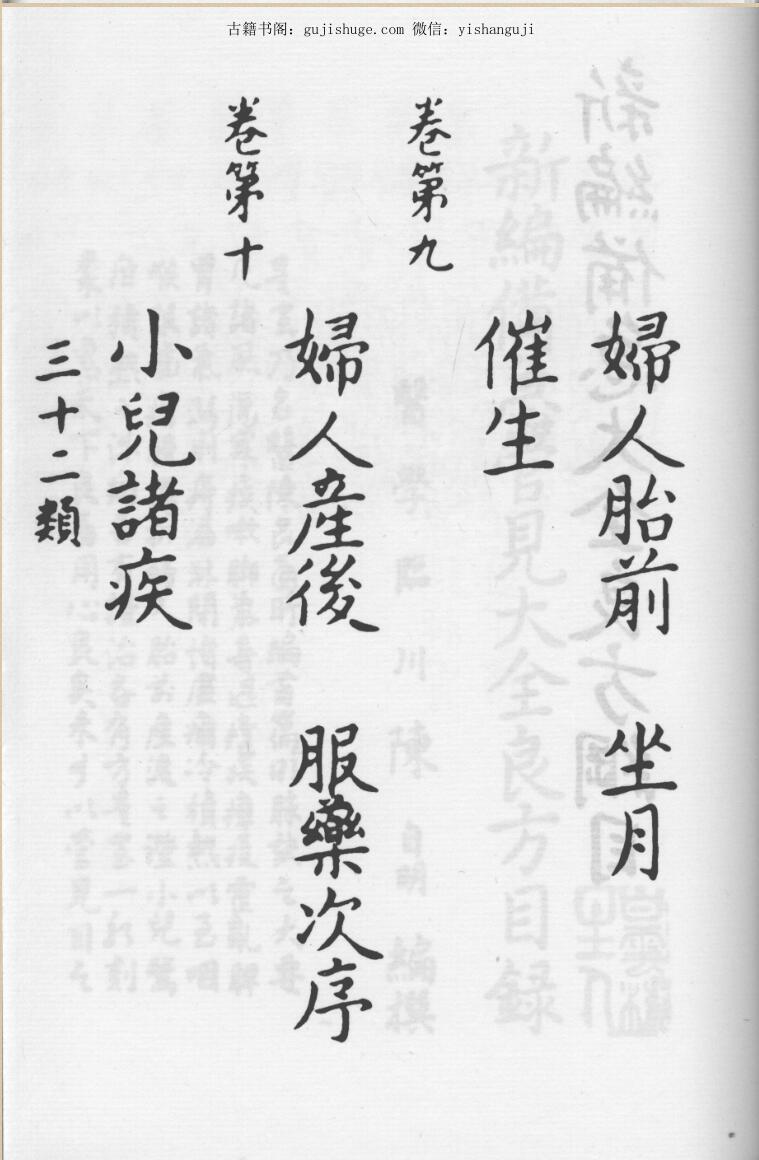 古籍书阁：gujishuge.com 微信：yishanguji
婦人胎前 坐月
催生
卷第九
婦人産後 服藥次序
卷第十
小兒諸疾
三十二類